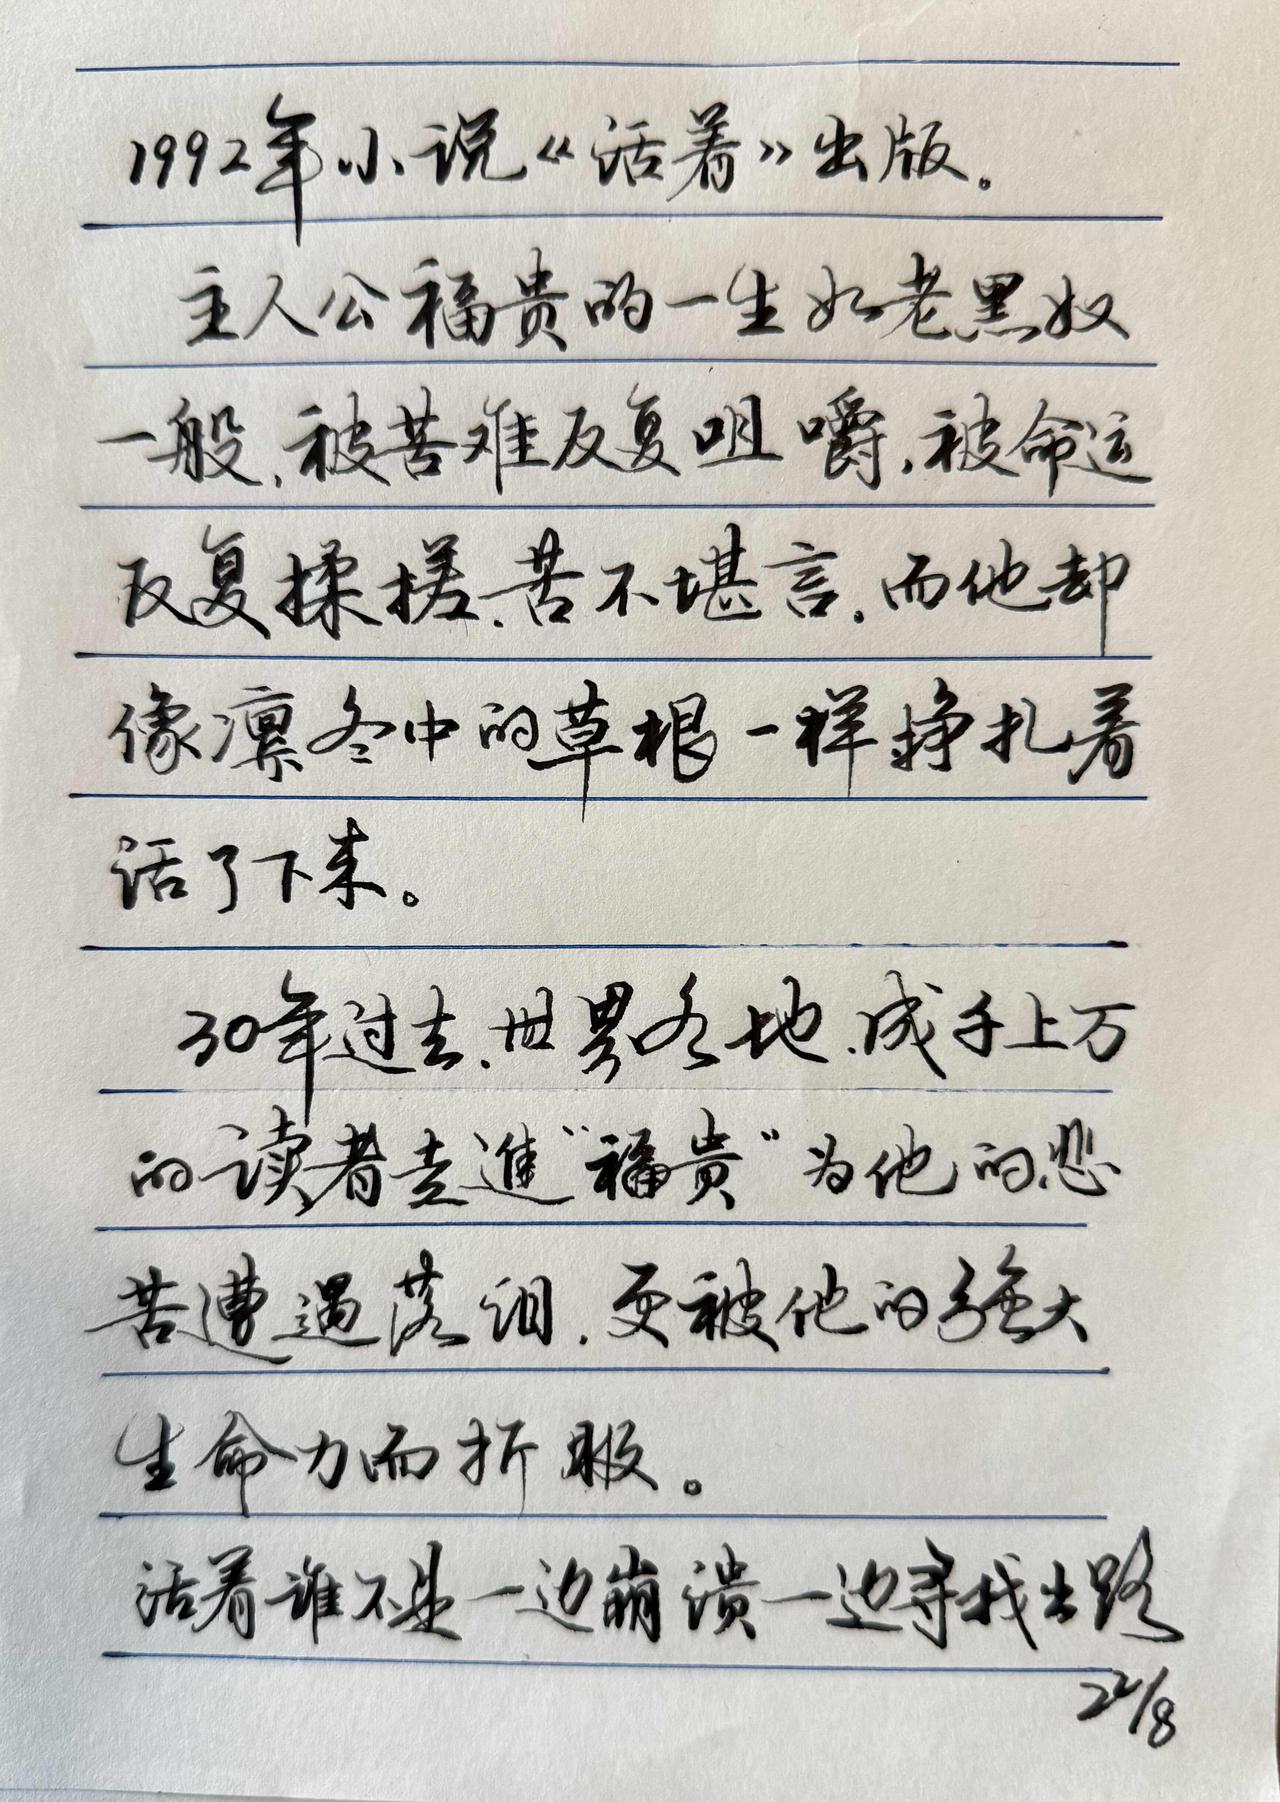 1992年小说《活着》出版。
主人公福贵的一生如老黑奴
一般，被苦难反复咀嚼，被命运
反复揉搓、苦不堪言，而他却
像凛冬中的草根一样挣扎着
活了下来。
30年过去，世界各地，成千上万
的读者走進“福贵”为他的悲
苦遭遇落泪，更被他的强大
生命力而折服。
活着谁不是一边崩溃一边寻找出路
22/8